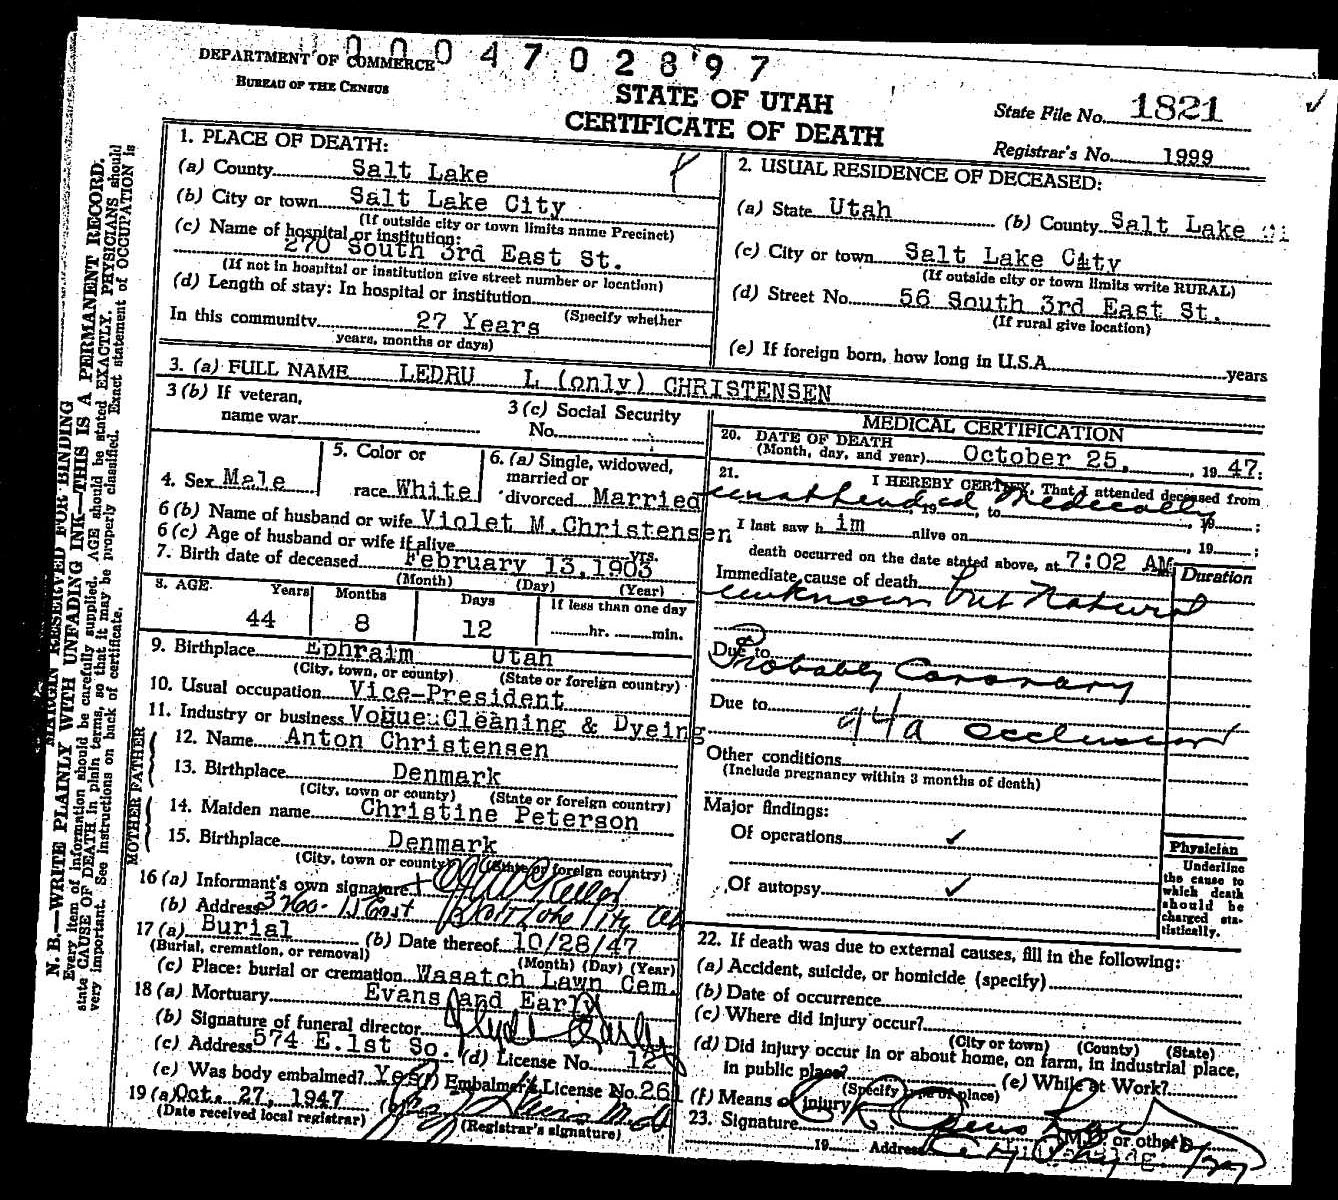 0004702897
DEPARTMENT OF COMMERCE
BUREAU OF THE CENSUS
STATE OF UTAH
CERTIFICATE OF DEATH
State File No. 1821
Registrar's No. 1999
MARGIN RESERVED FOR BINDING
N. B.—WRITE PLAINLY WITH UNFADING INK—THIS IS A PERMANENT RECORD.
Every item of information should be carefully supplied. AGE should be stated EXACTLY. PHYSICIANS should
state CAUSE OF DEATH in plain terms, so that it may be properly classified. Exact statement of OCCUPATION is
very important. See instructions on back of certificate.
1. PLACE OF DEATH:
(a) County Salt Lake
(b) City or town Salt Lake City
(If outside city or town limits name Precinct)
(c) Name of hospital or institution:
270 South 3rd East St.
(If not in hospital or institution give street number or location)
(d) Length of stay: In hospital or institution
(Specify whether
In this community 27 Years
years, months or days)
2. USUAL RESIDENCE OF DECEASED:
(a) State Utah (b) County Salt Lake
(c) City or town Salt Lake City
(If outside city or town limits write RURAL)
(d) Street No. 56 South 3rd East St.
(If rural give location)
(e) If foreign born, how long in U.S.A. years
3. (a) FULL NAME LEDRU L (only) CHRISTENSEN
3 (b) If veteran,
name war
3 (c) Social Security
No.
4. Sex Male
5. Color or
race White
6. (a) Single, widowed,
married or
divorced Married
6 (b) Name of husband or wife Violet M.Christensen
6 (c) Age of husband or wife if alive yrs.
7. Birth date of deceased February 13,1903
(Month) (Day) (Year)
8. AGE Years Months Days If less than one day
44 8 12 hr. min.
9. Birthplace Ephraim Utah
(City, town, or county) (State or foreign country)
10. Usual occupation Vice-President
11. Industry or business Vogue Cleaning & Dyeing
FATHER
12. Name Anton Christensen
13. Birthplace Denmark
(City, town or county) (State or foreign country)
MOTHER
14. Maiden name Christine Peterson
15. Birthplace Denmark
(City, town or county) (State or foreign country)
16 (a) Informant's own signature
(b) Address East Salt Lake City
17 (a) Burial (b) Date thereof 10/28/47
(Burial, cremation, or removal) (Month) (Day) (Year)
(c) Place: burial or cremation Wasatch Lawn Cem.
18 (a) Mortuary Evans and Early
(b) Signature of funeral director Clyde Early
(c) Address 574 E.1st So. (d) License No. 12
(e) Was body embalmed? Yes (f) Embalmer's License No. 26
19 (a) Oct. 27, 1947 (b)
(Date received local registrar) (Registrar's signature)
MEDICAL CERTIFICATION
20. DATE OF DEATH
(Month, day, and year) October 25, 1947.
21. I HEREBY CERTIFY, That I attended deceased from
unattended Medically 19 , to , 19 ;
I last saw h im alive on , 19 ;
death occurred on the date stated above, at 7:02 AM
Duration
Immediate cause of death
unknown but Natural
Due to
Probably Coronary
Due to 94a occlusion
Other conditions
(Include pregnancy within 3 months of death)
Major findings:
Of operations ✓
Of autopsy ✓
Physician
Underline
the cause to
which death
should be
charged sta-
tistically.
22. If death was due to external causes, fill in the following:
(a) Accident, suicide, or homicide (specify)
(b) Date of occurrence
(c) Where did injury occur?
(City or town) (County) (State)
(d) Did injury occur in or about home, on farm, in industrial place,
in public place? (e) While at Work?
(Specify type of place)
(f) Means of injury
23. Signature M.D. or other
19 Address